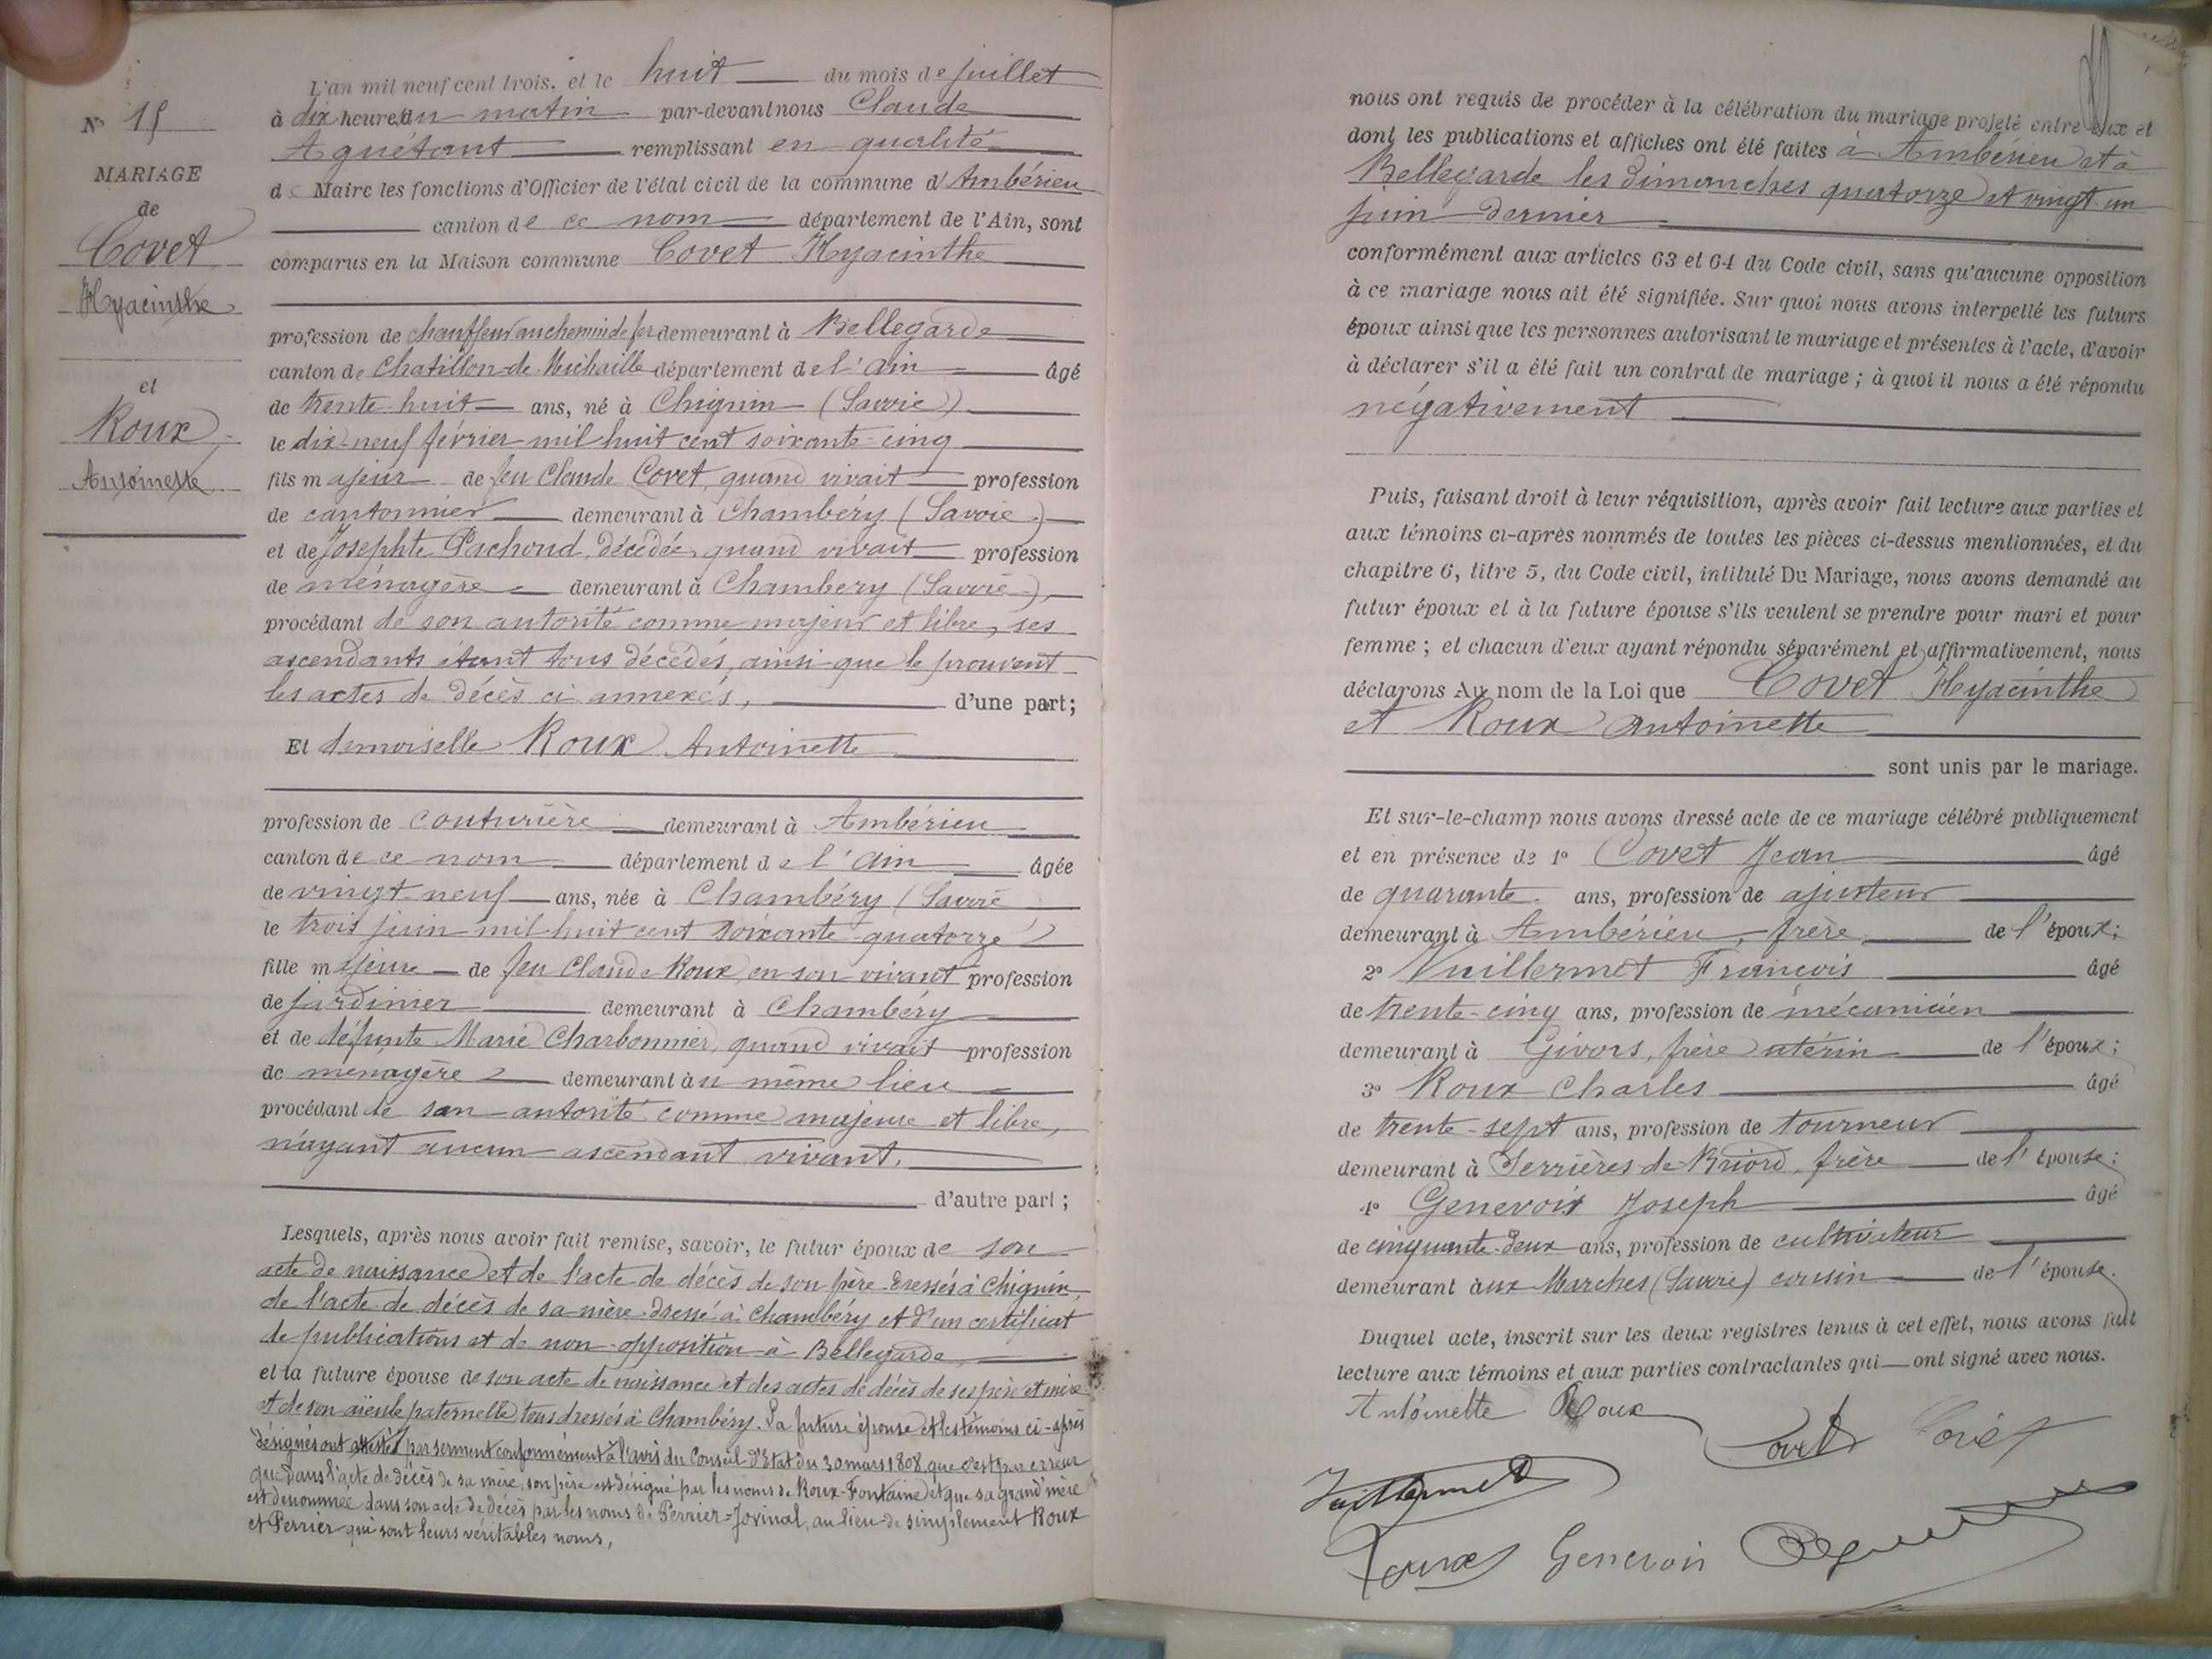 N° 15
MARIAGE
de
Covet
Hyacinthe
et
Roux
Antoinette
L'an mil neuf cent trois, et le huit du mois de juillet
à dix heures du matin par-devant nous Claude
Aguétant remplissant en qualité
de Maire les fonctions d'Officier de l'état civil de la commune d'Ambérieu
canton de ce nom département de l'Ain, sont
comparus en la Maison commune Covet Hyacinthe
profession de chauffeur au chemin de fer demeurant à Bellegarde
canton de Chatillon-de-Michaille département de l'Ain âgé
de trente-huit ans, né à Chignin (Savoie)
le dix-neuf février mil huit cent soixante-cinq
fils majeur de feu Claude Covet, quand vivait profession
de cantonnier demeurant à Chambéry (Savoie)
et de Josephte Pachoud, décédée, quand vivait profession
de ménagère demeurant à Chambery (Savoie),
procédant de son autorité comme majeur et libre, ses
ascendants étant tous décédés, ainsi que le prouvent
les actes de décès ci annexés, d'une part;
Et demoiselle Roux Antoinette
profession de couturière demeurant à Ambérieu
canton de ce nom département de l'Ain âgée
de vingt-neuf ans, née à Chambéry (Savoie
le trois juin mil huit cent soixante-quatorze
fille majeure de feu Claude Roux, en son vivant profession
de jardinier demeurant à Chambéry
et de défunte Marie Charbonnier, quand vivait profession
de ménagère demeurant au même lieu
procédant de son autorité comme majeure et libre,
n'ayant aucun ascendant vivant.
d'autre part;
Lesquels, après nous avoir fait remise, savoir, le futur époux de son
acte de naissance et de l'acte de décès de son père dressés à Chignin,
de l'acte de décès de sa mère dressé à Chambéry et d'un certificat
de publications et de non-opposition à Bellegarde,
et la future épouse de son acte de naissance et des actes de décès de ses père et mère
et de son aïeule paternelle tous dressés à Chambéry. La future épouse et les témoins ci-après
désignés ont attesté par serment conformément à l'avis du Conseil d'Etat du 30 mars 1808, que c'est par erreur
que dans l'acte de décès de sa mère, son père est désigné par les noms de Roux-Fontaine et que sa grand'mère
est dénommée dans son acte de décès par les noms de Perrier-Jovinal, au lieu de simplement Roux
et Perrier qui sont leurs véritables noms,
nous ont requis de procéder à la célébration du mariage projeté entre eux et
dont les publications et affiches ont été faites à Ambérieu et à
Bellegarde les dimanches quatorze et vingt-un
juin dernier
conformément aux articles 63 et 64 du Code civil, sans qu'aucune opposition
à ce mariage nous ait été signifiée. Sur quoi nous avons interpellé les futurs
époux ainsi que les personnes autorisant le mariage et présentes à l'acte, d'avoir
à déclarer s'il a été fait un contrat de mariage; à quoi il nous a été répondu
négativement
Puis, faisant droit à leur réquisition, après avoir fait lecture aux parties et
aux témoins ci-après nommés de toutes les pièces ci-dessus mentionnées, et du
chapitre 6, titre 5, du Code civil, intitulé Du Mariage, nous avons demandé au
futur époux et à la future épouse s'ils veulent se prendre pour mari et pour
femme; et chacun d'eux ayant répondu séparément et affirmativement, nous
déclarons Au nom de la Loi que Covet Hyacinthe
et Roux Antoinette
sont unis par le mariage.
Et sur-le-champ nous avons dressé acte de ce mariage célébré publiquement
et en présence de 1° Covet Jean âgé
de quarante ans, profession de ajusteur
demeurant à Ambérieu, frère de l'époux;
2° Vuillermet François âgé
de trente-cinq ans, profession de mécanicien
demeurant à Givors, frère utérin de l'époux;
3° Roux Charles âgé
de trente-sept ans, profession de tourneur
demeurant à Serrières-de-Briord, frère de l'épouse;
4° Genevois Joseph âgé
de cinquante-deux ans, profession de cultivateur
demeurant aux Marches (Savoie) cousin de l'épouse.
Duquel acte, inscrit sur les deux registres tenus à cet effet, nous avons fait
lecture aux témoins et aux parties contractantes qui ont signé avec nous.
Antoinette Roux Covet Covet
Vuillermet
Roux Genevois